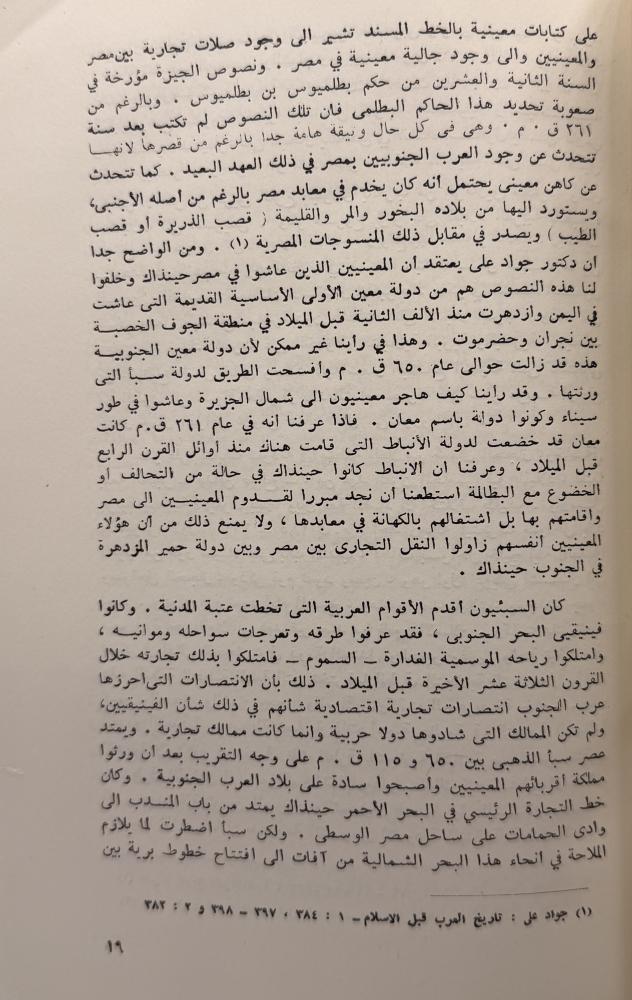 على كتابات معينية بالخط المسند تشير الى وجود صلات تجارية بين مصر
والمعينيين والى وجود جالية معينية في مصر . ونصوص الجيزة مؤرخة في
السنة الثانية والعشرين من حكم بطلميوس بن بطلميوس . وبالرغم من
صعوبة تحديد هذا الحاكم البطلمى فان تلك النصوص لم تكتب بعد سنة
٢٦١ ق . م . وهى فى كل حال وثيقة هامة جدا بالرغم من قصرها لانها
تتحدث عن وجود العرب الجنوبيين بمصر في ذلك العهد البعيد . كما تتحدث
عن كاهن معينى يحتمل أنه كان يخدم في معابد مصر بالرغم من أصله الأجنبى،
ويستورد اليها من بلاده البخور والمر والقليمة ( قصب الذريرة أو قصب
الطيب ) ويصدر في مقابل ذلك المنسوجات المصرية (١) . ومن الواضح جدا
ان دكتور جواد على يعتقد أن المعينيين الذين عاشوا في مصر حينذاك وخلفوا
لنا هذه النصوص هم من دولة معين الأولى الأساسية القديمة التى عاشت
في اليمن وازدهرت منذ الألف الثانية قبل الميلاد في منطقة الجوف الخصبة
بين نجران وحضرموت . وهذا في راينا غير ممكن لأن دولة معين الجنوبية
هذه قد زالت حوالى عام ٦٥٠ ق . م وأفسحت الطريق لدولة سبأ التى
ورثتها . وقد راينا كيف هاجر معينيون الى شمال الجزيرة وعاشوا في طور
سيناء وكونوا دولة باسم معان . فاذا عرفنا أنه في عام ٢٦١ ق.م كانت
معان قد خضعت لدولة الأنباط التى قامت هناك منذ أوائل القرن الرابع
قبل الميلاد ، وعرفنا ان الانباط كانوا حينذاك في حالة من التحالف أو
الخضوع مع البطالمة استطعنا أن نجد مبررا لقدوم المعينيين الى مصر
واقامتهم بها بل اشتغالهم بالكهانة في معابدها ، ولا يمنع ذلك من أن هؤلاء
المعينيين أنفسهم زاولوا النقل التجارى بين مصر وبين دولة حمير المزدهرة
في الجنوب حينذاك .
كان السبئيون أقدم الأقوام العربية التى تخطت عتبة المدنية . وكانوا
فينيقيى البحر الجنوبى ، فقد عرفوا طرقه وتعرجات سواحله وموانيه ،
وامتلكوا رياحه الموسمية الغدارة ــ السموم ــ فامتلكوا بذلك تجارته خلال
القرون الثلاثة عشر الأخيرة قبل الميلاد . ذلك بأن الانتصارات التى احرزها
عرب الجنوب انتصارات تجارية اقتصادية شأنهم في ذلك شأن الفينيقيين،
ولم تكن الممالك التى شادوها دولا حربية وانما كانت ممالك تجارية . ويمتد
عصر سبأ الذهبى بين ٦٥٠ و ١١٥ ق . م على وجه التقريب بعد أن ورثوا
مملكة أقربائهم المعينيين وأصبحوا سادة على بلاد العرب الجنوبية . وكان
خط التجارة الرئيسي في البحر الأحمر حينذاك يمتد من باب المندب الى
وادى الحمامات على ساحل مصر الوسطى . ولكن سبأ اضطرت لما يلازم
الملاحة في انحاء هذا البحر الشمالية من آفات الى افتتاح خطوط برية بين
(١) جواد على : تاريخ العرب قبل الاسلام ــ ١ : ٣٨٤ ، ٣٩٧ ــ ٣٩٨ و ٢ : ٣٨٢
١٩